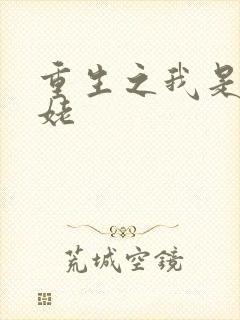 重生之我是
姥
荒城空镜